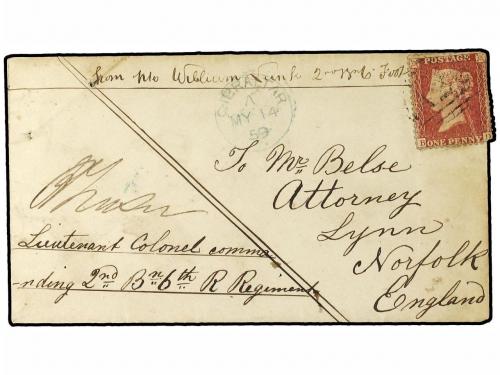 from pte William 2nd Bn 6 Foot
GIBRALTAR
A
MY 14
59
POSTAGE
ONE PENNY
To Mr. Belse
Attorney
Lynn
Norfolk
England
Lieutenant Colonel comma
-nding 2nd Bn 6th R Regiment